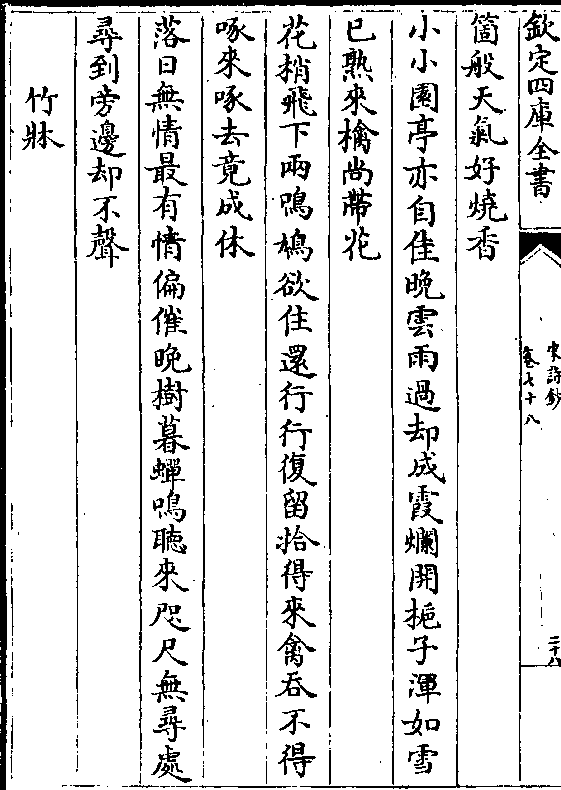 欽定四庫全書
宋詩鈔
卷七十八
二十八
箇般天氣好燒香
小小園亭亦自佳晚雲雨過却成霞爛開梔子渾如雪
已熟來檎尚帶花
花梢飛下兩鳴鳩欲住還行行復留拾得來禽吞不得
啄來啄去竟成休
落日無情最有情偏催晚樹暮蟬鳴聽來咫尺無尋處
尋到旁邊却不聲
竹牀